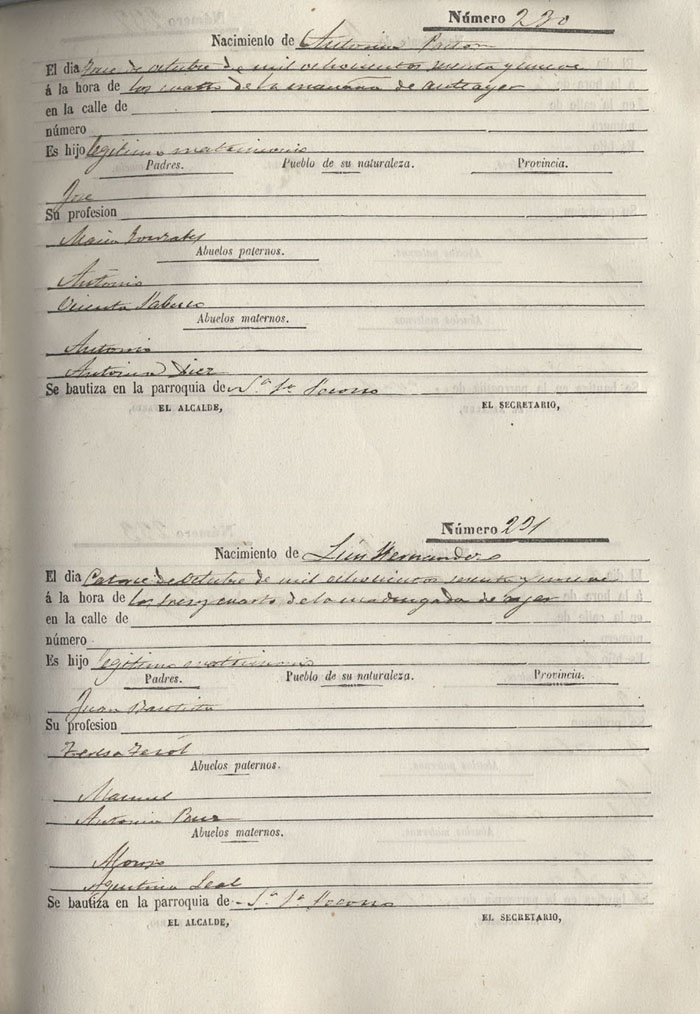 Número 230
Nacimiento de Antonina Pastor
El dia Trece de octubre de mil ochocientos sesenta y nueve
á la hora de las cuatro de la mañana de anteayer
en la calle de
número
Es hijo legitimo matrimonio
Padres. Pueblo de su naturaleza. Provincia.
Jose
Su profesion
Maria Gonzalez
Abuelos paternos.
Antonio
Vicenta
Abuelos maternos.
Antonio
Antonina Diez
Se bautiza en la parroquia de Nª Sª Socorro
EL ALCALDE, EL SECRETARIO,
Número 231
Nacimiento de Luis Hernandez
El dia Catorce de Octubre de mil ochocientos sesenta y nueve
á la hora de las tres y cuarto de la madrugada de ayer
en la calle de
número
Es hijo legitimo matrimonio
Padres. Pueblo de su naturaleza. Provincia.
Juan Bautista
Su profesion
Teresa Terol
Abuelos paternos.
Manuel
Antonia
Abuelos maternos.
Alonzo
Agustina Leal
Se bautiza en la parroquia de Sª Socorro
EL ALCALDE, EL SECRETARIO,